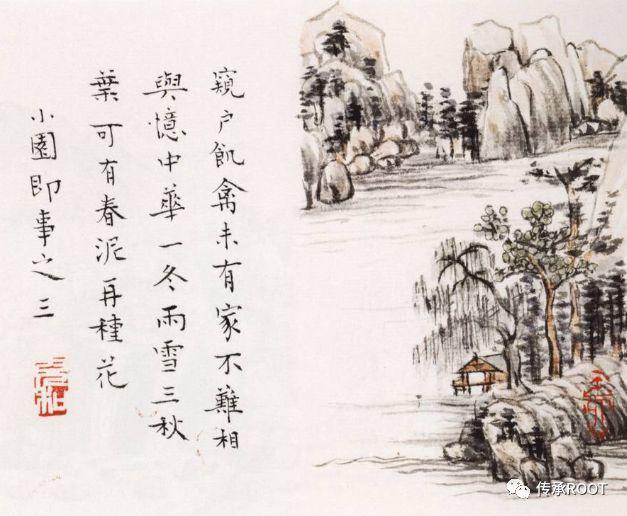 窺户飢禽未有家不難相
與憶中華一冬雨雪三秋
葉可有春泥再種花
小園即事之三
传承ROOT